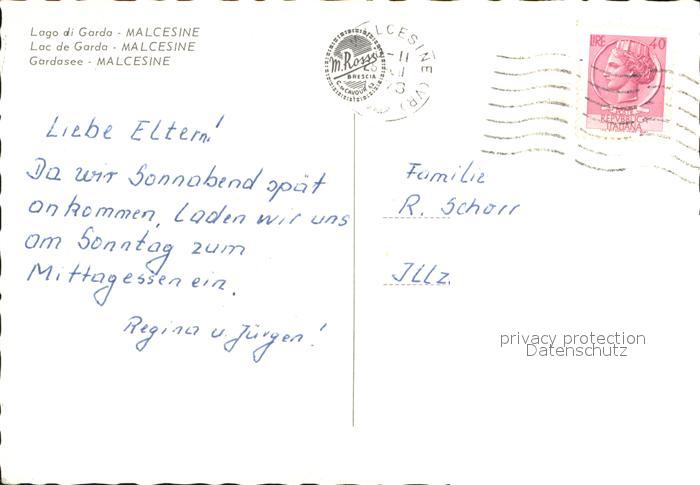 Lago di Garda - MALCESINE
Lac de Garda - MALCESINE
Gardasee - MALCESINE
MALCESINE (VR)
M. Rossi
BRESCIA
LIRE 40
REPVBBLICA
ITALIANA
Liebe Eltern!
Da wir Sonnabend spät
ankommen, laden wir uns
am Sonntag zum
Mittagessen ein.
Regina u. Jürgen!
Familie
R. Schorr
Jllz.
privacy protection
Datenschutz